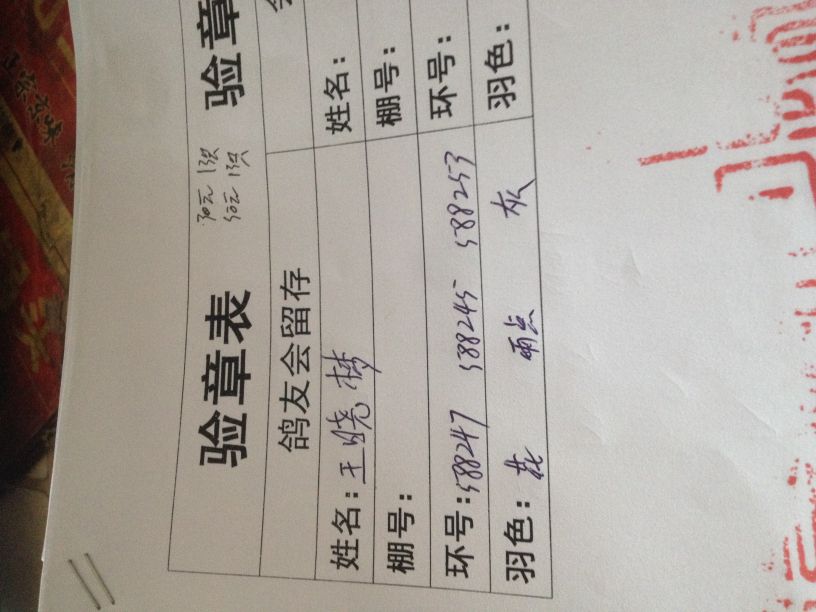 验章表
30元 1只
50元 1只
鸽友会留存
姓名：王晓梦
棚号：
环号：588247 588245 588253
羽色：花 雨点 灰
验章
姓名：
棚号：
环号：
羽色：